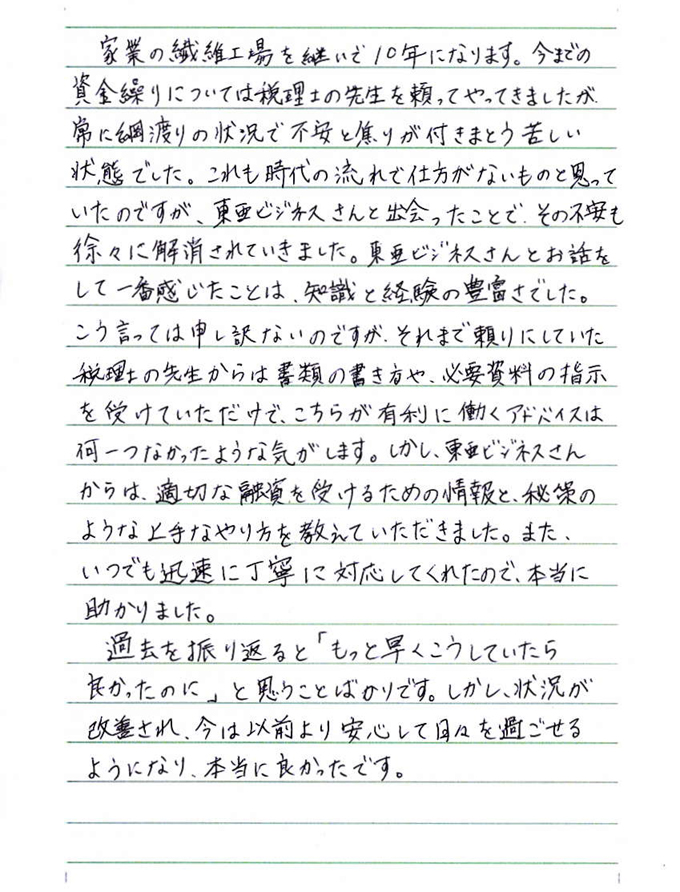 家業の繊維工場を継いで10年になります。今までの
資金繰りについては税理士の先生を頼ってやってきましたが、
常に綱渡りの状況で不安と焦りが付きまとう苦しい
状態でした。これも時代の流れで仕方がないものと思って
いたのですが、東亜ビジネスさんと出会ったことで、その不安も
徐々に解消されていきました。東亜ビジネスさんとお話を
して一番感じたことは、知識と経験の豊富さでした。
こう言っては申し訳ないのですが、それまで頼りにしていた
税理士の先生からは書類の書き方や、必要資料の指示
を受けていただけで、こちらが有利に働くアドバイスは
何一つなかったような気がします。しかし、東亜ビジネスさん
からは、適切な融資を受けるための情報と、秘策の
ような上手なやり方を教えていただきました。また、
いつでも迅速に丁寧に対応してくれたので、本当に
助かりました。
過去を振り返ると「もっと早くこうしていたら
良かったのに」と思うことばかりです。しかし、状況が
改善され、今は以前より安心して日々を過ごせる
ようになり、本当に良かったです。